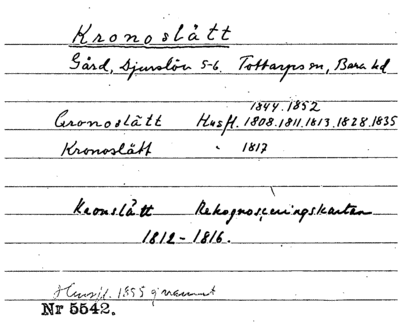 Kronoslätt
Gård, Djurslöv 5-6. Tottarps sn, Bara hd
1844.1852
Cronoslätt Husfl. 1808.1811.1813.1828.1835
Kronoslätt " 1817
Kronslätt Rekognosceringskartan
1812-1816.
Husfl. 1855
Nr 5542.